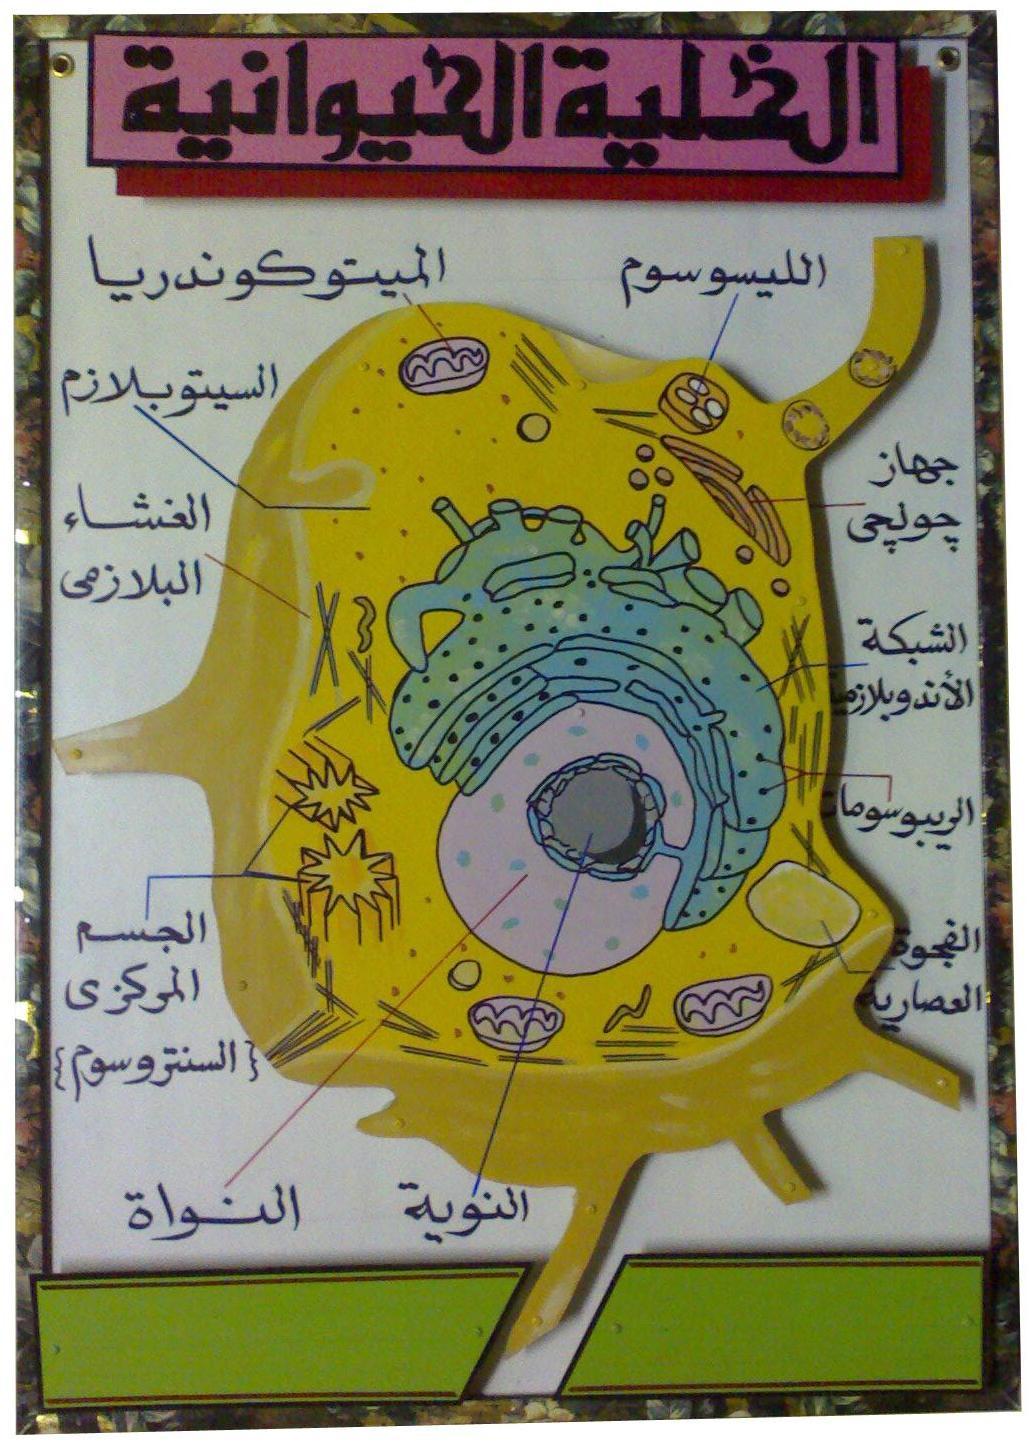 الخلية الحيوانية
الليسوسوم
الميتوكوندريا
السيتوبلازم
جهاز
جولجى
الغشاء
البلازمى
الشبكة
الأندوبلازمية
الريبوسومات
الجسم
المركزى
{السنتروسوم}
الفجوة
العصارية
النوية
النواة